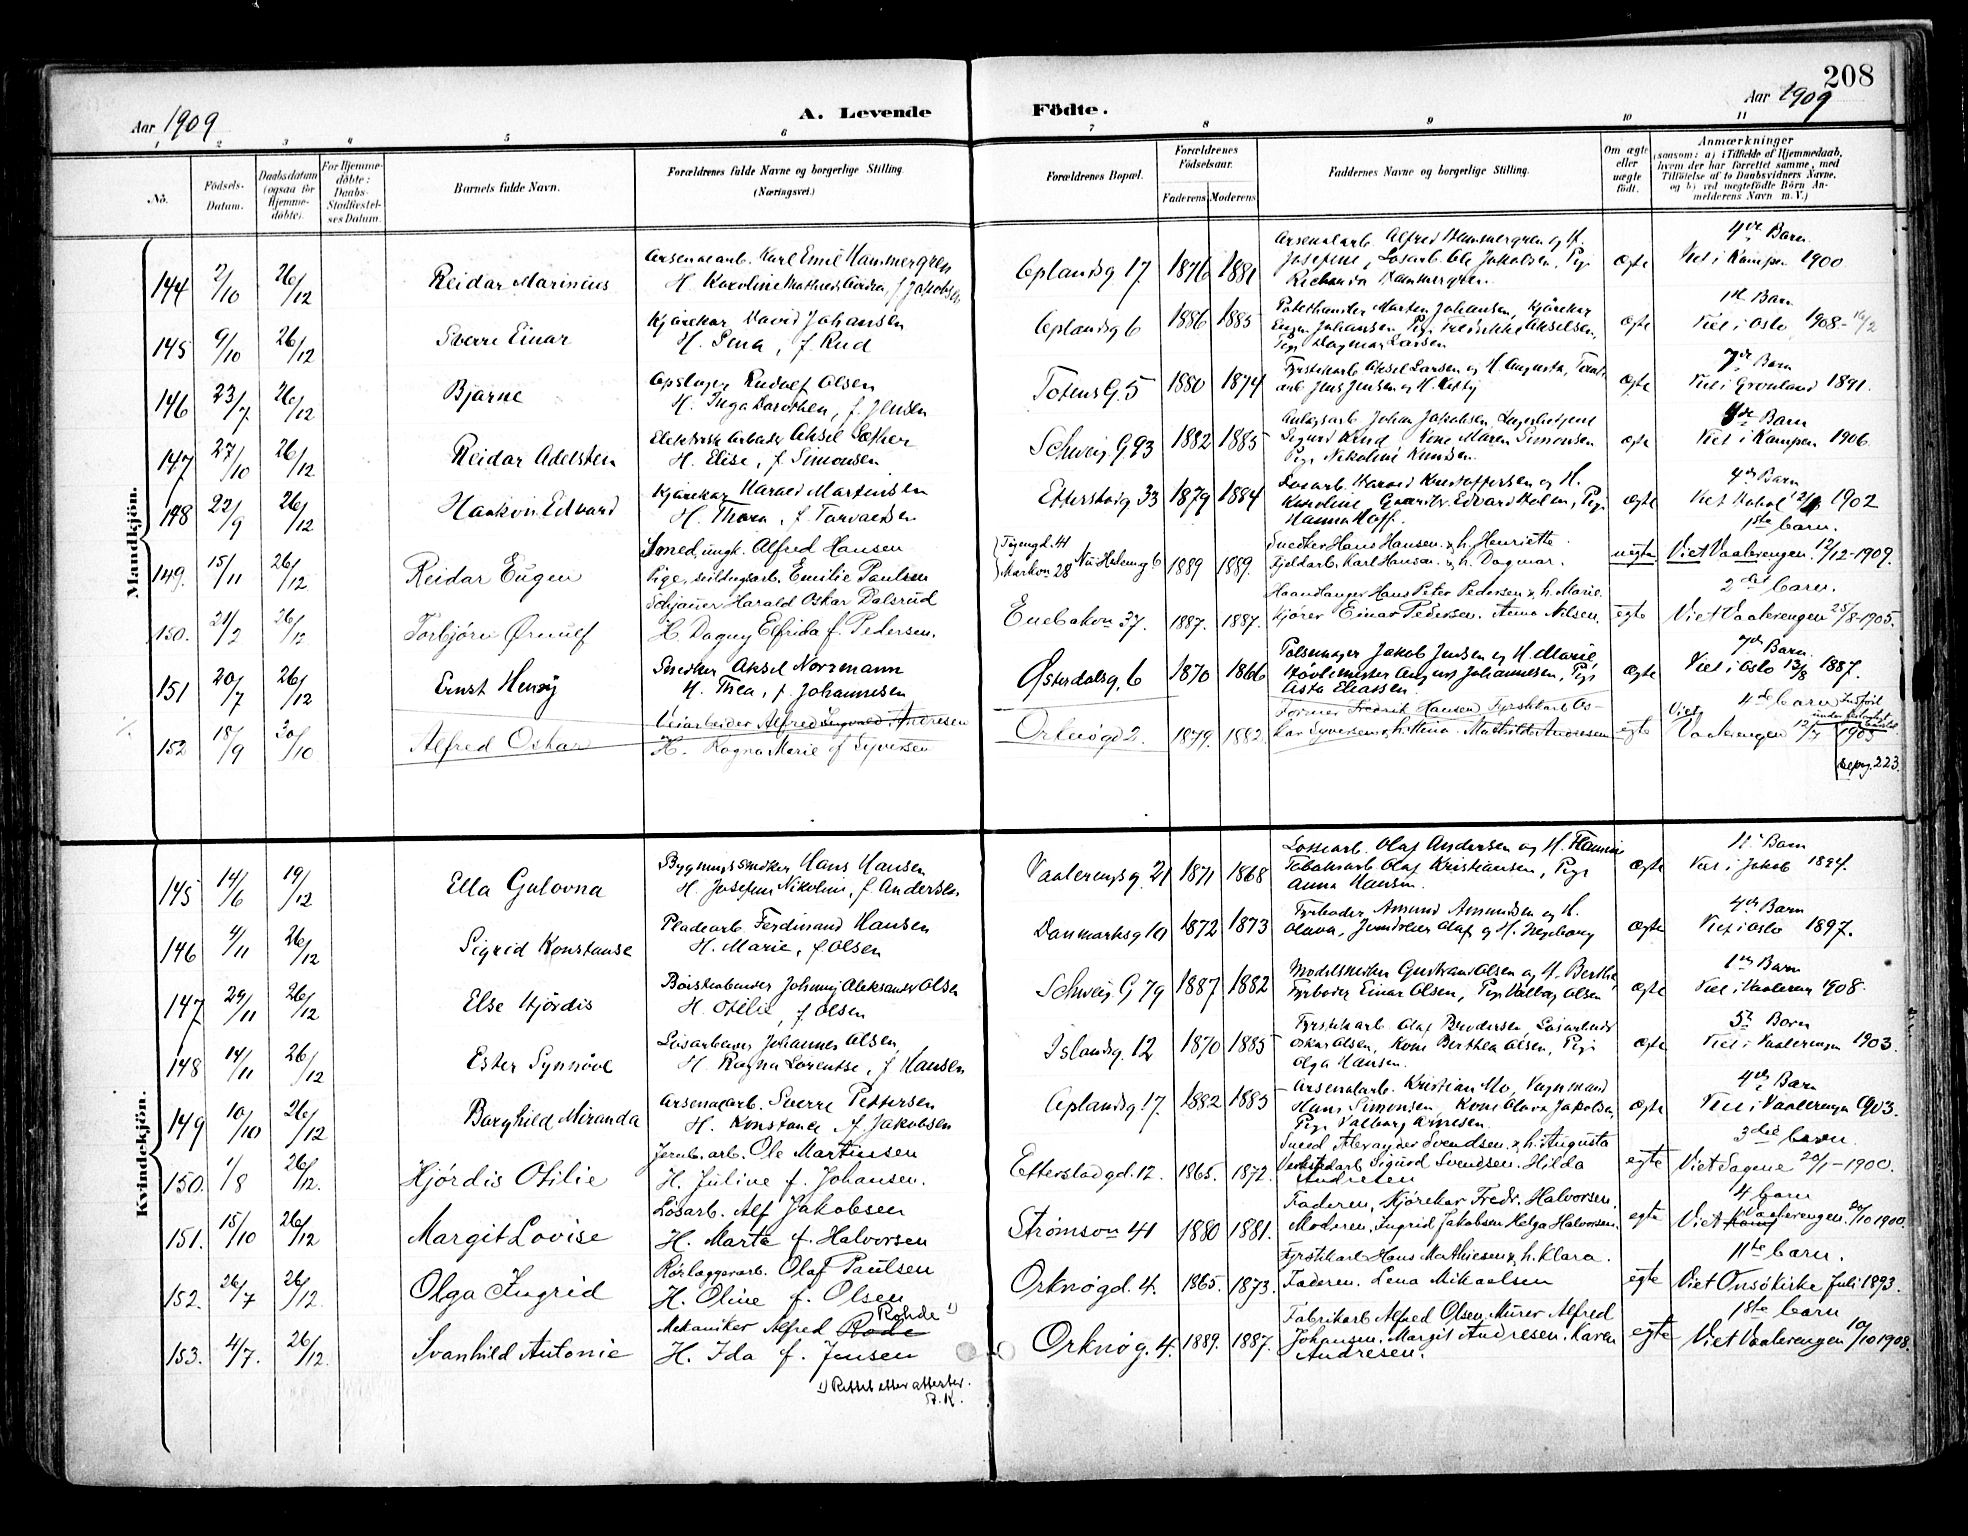 208
Aar 1909
A. Levende Födte.
Aar 1909
1 2 3 4 5 6 7 8 9 10 11
No.
Födsels-Datum.
Daabsdatum (ogsaa for Hjemme-döbte).
For Hjemme-döbte: Daabs-Stadfæstel-ses Datum.
Barnets fulde Navn.
Forældrenes fulde Navne og borgerlige Stilling. (Næringsvei.)
Forældrenes Bopæl.
Forældrenes Födselsaar.
Faderens Moderens
Faddernes Navne og borgerlige Stilling.
Om ægte eller uægte födt.
Anmærkninger
(saasom: a) i Tilfælde af Hjemmedaab,
hvem der har forrettet samme, med
Tilföielse af to Daabsvidners Navne,
og b) ved uægtefödte Börn An-
melderens Navn m. V.)
Mandkjön.
Arsenalarb. Karl Emil Hammergren
Arsenalarb. Alfred Hammergren og H.
4de Barn
144 2/10 26/12 Reidar Marinius H. Karoline Mathilde f. Jakobsen Oplandsg 17. 1876 1881 Josefine, Løsarb. Ole Jakobsen, Pige ægte Viet i Kampen 1900
Hammergren.
Kjørekar David Johansen
Martin Johansen, Kjørekar
1st. Barn
145 9/10 26/12 Sverre Einar H. Lena, f. Rud Oplandsg 6 1886 1885 Johansen, Pige Akselsen, ægte Viet i Oslo 1908
Pige Dagmar Larsen
Opslager Rudolf Olsen
Fyrstikarb Aksel Larsen og H. Augusta,
7de Barn
146 23/7 26/12 Bjarne H. Inga Dorothea, f. Jensen Totens G. 5 1880 1874 arb Jens Jensen og H. ægte Viet i Grønland 1891.
Elektrisk Arbeider Aksel Sæther
Johan Jakobsen,
Barn
147 27/10 26/12 Reidar Adelsten H. Elise, f. Simonsen Schweig. G. 93 1882 1885 Sigurd Kone Maren Simonsen ægte Viet i Kampen 1906.
Pige Nikoline Knudsen
Kjørekar Harald Martinsen
Løsarb. Harald Kristoffersen og H.
4de Barn
148 22/9 26/12 Haakon Edvard H. Thora, f. Torvaldsen Etterstadg 33 1879 1884 Karoline, Edvard Holen, Pige ægte Viet 1902
Hanna Hoff.
1ste barn.
Smed, ungk. Alfred Hansen
Tøiengd. 41
Snedker Hans Hansen & h. Henriette.
149. 15/11 26/12 Reidar Eugen Pige, Emilie Paulsen Markvn 28 1889 1889. Fjeldarb. Karl Hansen & h. Dagmar. uegte Viet Vaalerengen 12/12-1909.
Schjauer Harald Oskar Dalsrud
Haandlanger Hans Peter Pedersen & h. Marie.
2det barn.
150. 21/2 26/12 Torbjörn Ørnulf H. Dagny Elfrida f. Pedersen. Enebakvn 37. 1887. 1887. Kjører Einar Pedersen. Anna Nilsen. egte Viet Vaalerengen 25/8-1905.
Snedker Aksel Norrmann
Pølsemager Jakob Jensen og H. Marie
7de Barn
151 20/7 26/12 Ernst Henry H. Thea, f. Johannesen Østerdalsg. 6 1870 1866 August Johannesen, Pige ægte Viet i Oslo 13/8 1887.
Asta Eliassen.
Alfred Ingvald Andresen
Former Fredrik Hansen Fyrstikarb Os-
4de barn
152 18/9 30/10 Alfred Oskar H. Ragna Marie f. Syversen Orknögd 2. 1879. 1882. kar Syversen & h. Mina. Mathilde Andresen egte Viet Vaalerengen 12/7 1903
pag. 223.
Kvindekjön.
Bygningssnekker Hans Hansen
Løsarb. Olaf Andersen og H. Hannine
11 Barn
145 14/6 19/12 Ella Gulovna H. Josefine Nikoline, f Andersen Vaalerengsg. 21 1871 1868 Tobaksarb Olaf Kristiansen, Pige ægte Viet i Jakob 1894.
Anna Hansen.
Pladearb. Ferdinand Hansen
Fyrbøder Amund Amundsen og H.
4de Barn
146 4/11 26/12 Sigrid Konstanse H. Marie, f Olsen Danmarksg 19 1872 1873 Olava, Olaf og H. Ingeborg ægte Viet i Oslo 1897.
Børstenbinder Johnny Aleksander Olsen
Modelsnedker Gustav Olsen og H. Berthe,
1ste Barn
147 29/11 26/12 Else Hjördis H. Otilie, f Olsen Schweig. G 79 1887 1882 Fyrbøder Einar Olsen, Pige Valborg Olsen ægte Viet i Vaalereng 1908.
Løsarbeider Johannes Olsen
Fyrstikarb. Olaf Brodersen, Løsarbeider
5te Barn
148 14/11 26/12 Ester Synnöve H. Ragna Lorentse, f Hansen Islandsg. 12 1870 1885 Oskar Olsen, Kone Berthea Olsen, Pige ægte Viet i Vaalerengen 1903.
Olga Hansen.
Arsenalarb. Sverre Pettersen
Arsenalarb. Kristian Mo, Vognmand
4de Barn
149 10/10 26/12 Borghild Miranda H. Konstance f. Jakobsen Oplandsg. 17. 1882 1883 Hans Simonsen, Kone Olava Jakobsen, ægte Viet i Vaalerengen 1903.
Pige Valborg
3die barn.
Jernb. arb. Ole Martinsen
Smed Alexander Svendsen & h. Augusta
150. 1/8 26/12. Hjördis Otilie H. Juline f. Johansen. Etterstadgd. 12. 1865. 1872. Verkstedarb Sigurd Svendsen. Hilda egte Viet Sagene 20/1-1900.
Andresen
Lösarb. Alf Jakobsen
Faderen, Kjørekar Fredr. Halvorsen,
4 barn
151. 15/10 26/12 Margit Lovise H. Marta f. Halvorsen Strømsvn 41 1880 1881. Moderen, Ingrid Jakobsen Helga Halvorsen. egte Viet Vaalerengen. 20/10 1900.
Rörlæggerarb. Olaf Paulsen
Fyrstikarb Hans Mathiesen & h. Klara.
11te barn.
152. 26/7 26/12. Olga Ingrid H. Oline f. Olsen Orknögd. 4. 1865. 1873. Faderen. Lena Mikaelsen egte Viet Onsö Kirke Juli 1893.
Rohde 1)
Mekaniker Alfred Rode
Fabrikarb Alfred Olsen, Murer Alfred
1ste barn
153. 4/7. 26/12. Svanhild Antonie H. Ida f. Jensen Orknög. 4. 1889. 1887. Johansen. Margit Andresen. Karen egte Viet Vaalerengen 10/10 1908.
Andresen.
1) Rettet etter attester.
R.K.